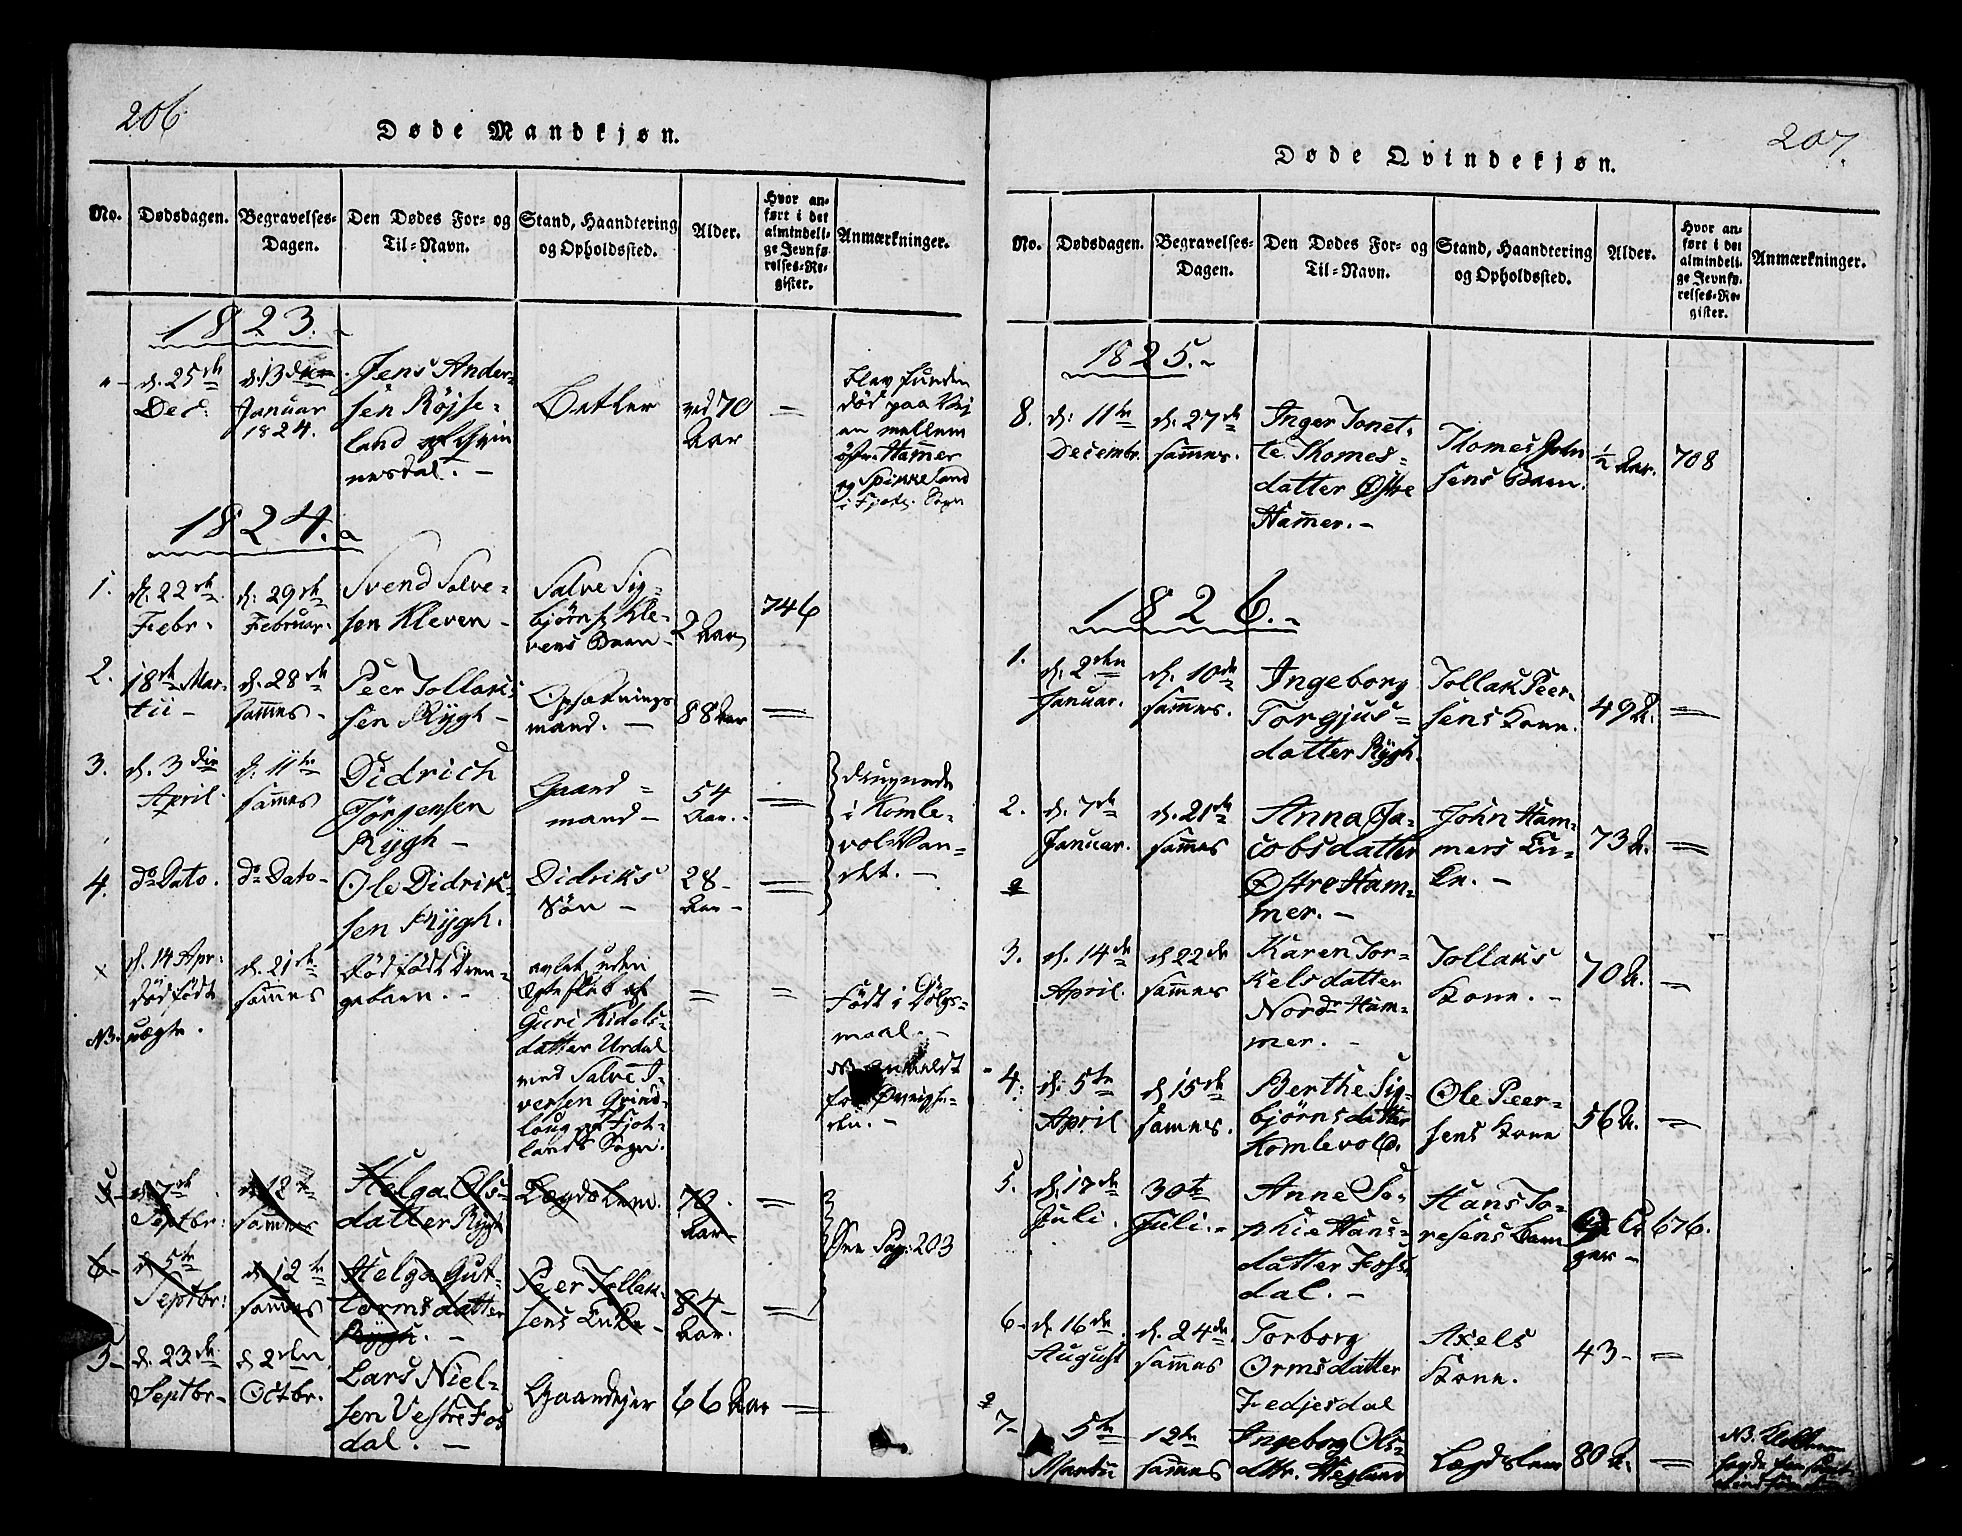 206
Døde Mandkjøn.
No.
Dødsdagen.
Begravelses-
Dagen.
Den Dødes For- og
Til-Navn.
Stand, Haandtering
og Opholdssted.
Alder.
Hvor an-
ført i det
almindeli-
ge Jevnfø-
relses-Re-
gister.
Anmærkninger.
1823.
d. 25de
Dec:
d. 13
Januar
1824.
Jens Ander-
sen Röjse-
land
nesdal.
Betler
ved 70
Aar
blev funden
död paa Vej
en mellem
östre Hammer
og Spikkeland
i Sogn
1824.
1.
d. 22de
Febr.
d. 29de
Februar.
Svend Salve-
sen Kleven
Salve Sig-
björns Kle-
vens Barn
2 Aar
746
2.
18de Mar-
tii
d. 28de
sammes
Peer Tollaks
sen Rygh
Opsætnings
mand.
88 Aar
3.
d. 3die
April
d. 11te
sammes
Didrich
Jörgensen
Rygh
Gaard-
mand
54
Aar.
druknede
i Komle-
vol Van-
det.
4.
do Dato.
do Dato
Ole Didrik-
sen Rygh.
Didriks
Sön
28
Aar
x
d. 14 Apr:
dödfödt
NB. uægte.
d. 21de
sammes
Dödfödt Dren-
gebarn.
avlet uden
Ægteskab af
Guri Kidels-
datter Urdal
med Salve I-
versen Grind-
Fjot-
lands Sogn.
Födt i Dölgs-
maal.
NB. anmeldt
for Övrighe-
den.
5
d. 7de
Septbr:
d. 12te
sammes
Helga Ols-
datter Rygh
Lægdslem.
70
Aar
See Pag: 203
6
d. 5te
Septbr:
d. 12te
sammes
Helga Gut-
tormsdatter
Rygh.
Peer Tollak-
sens Enke
84
Aar.
5
d. 23de
Septbr
d. 2den
Octbr.
Lars Niel-
sen Vestre Fos
dal.
Gaardejer
66 Aar
207.
Døde Qvindekjøn.
No.
Dødsdagen.
Begravelses-
Dagen.
Den Dødes For- og
Til-Navn.
Stand, Haandtering
og Opholdssted.
Alder.
Hvor an-
ført i det
almindeli-
ge Jevnfø-
relses-Re-
gister.
Anmærkninger.
1825.
8.
d. 11te
Decembr.
d. 27de
sammes.
Inger Tonet-
te Thomes-
datter Østre
Hamer.
Thomes John
sens Barn.
½ Aar.
708
1826.
1.
d. 2den
Januar.
d. 10de
sammes.
Ingeborg
Torgjus-
datter Rygh.
Tollak Peer-
sens Kone.
49 A.
2.
d. 7de
Januar.
d. 21de
sammes
Anna Ja-
cobsdatter
Østre Ham-
mer.
John Ham-
mers En-
ke.
73 A.
3.
d. 14de
April.
d. 22de
sammes
Karen Tor-
kelsdatter
Nordr Ham-
mer.
Tollaks
Kone.
70 A.
4.
d. 5te
April
d. 15de
sammes.
Berthe Sig-
björnsdatter
Komlevold.
Ole Peer-
sens Kone
56 A.
5.
d. 17de
Juli.
30te
Juli.
Anne So-
phie Hans-
datter Foss-
dal.
Hans To-
resens Barn
676.
6
d. 16de
August
d. 24de
sammes
Torborg
Ormsdatter
Fedjesdal
Axels
Kone.
43
7
5te
Martii
12te
sammes
Ingeborg Ols-
dttr. Hegland
Lægdslem
80 A.
NB.